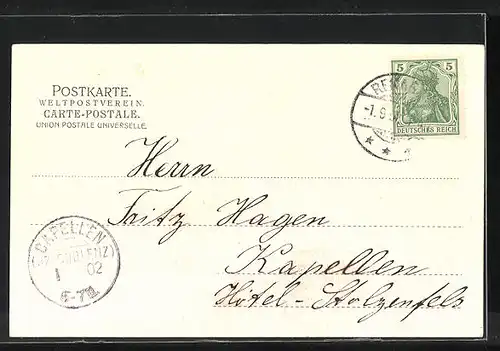 POSTKARTE.
WELTPOSTVEREIN.
CARTE-POSTALE.
UNION POSTALE UNIVERSELLE.
5 5
DEUTSCHES REICH
-1.9.
Herrn
Fritz Hagen
Kapellen
Hôtel-Stolzenfels
CAPELLEN
1 02
6-7N.